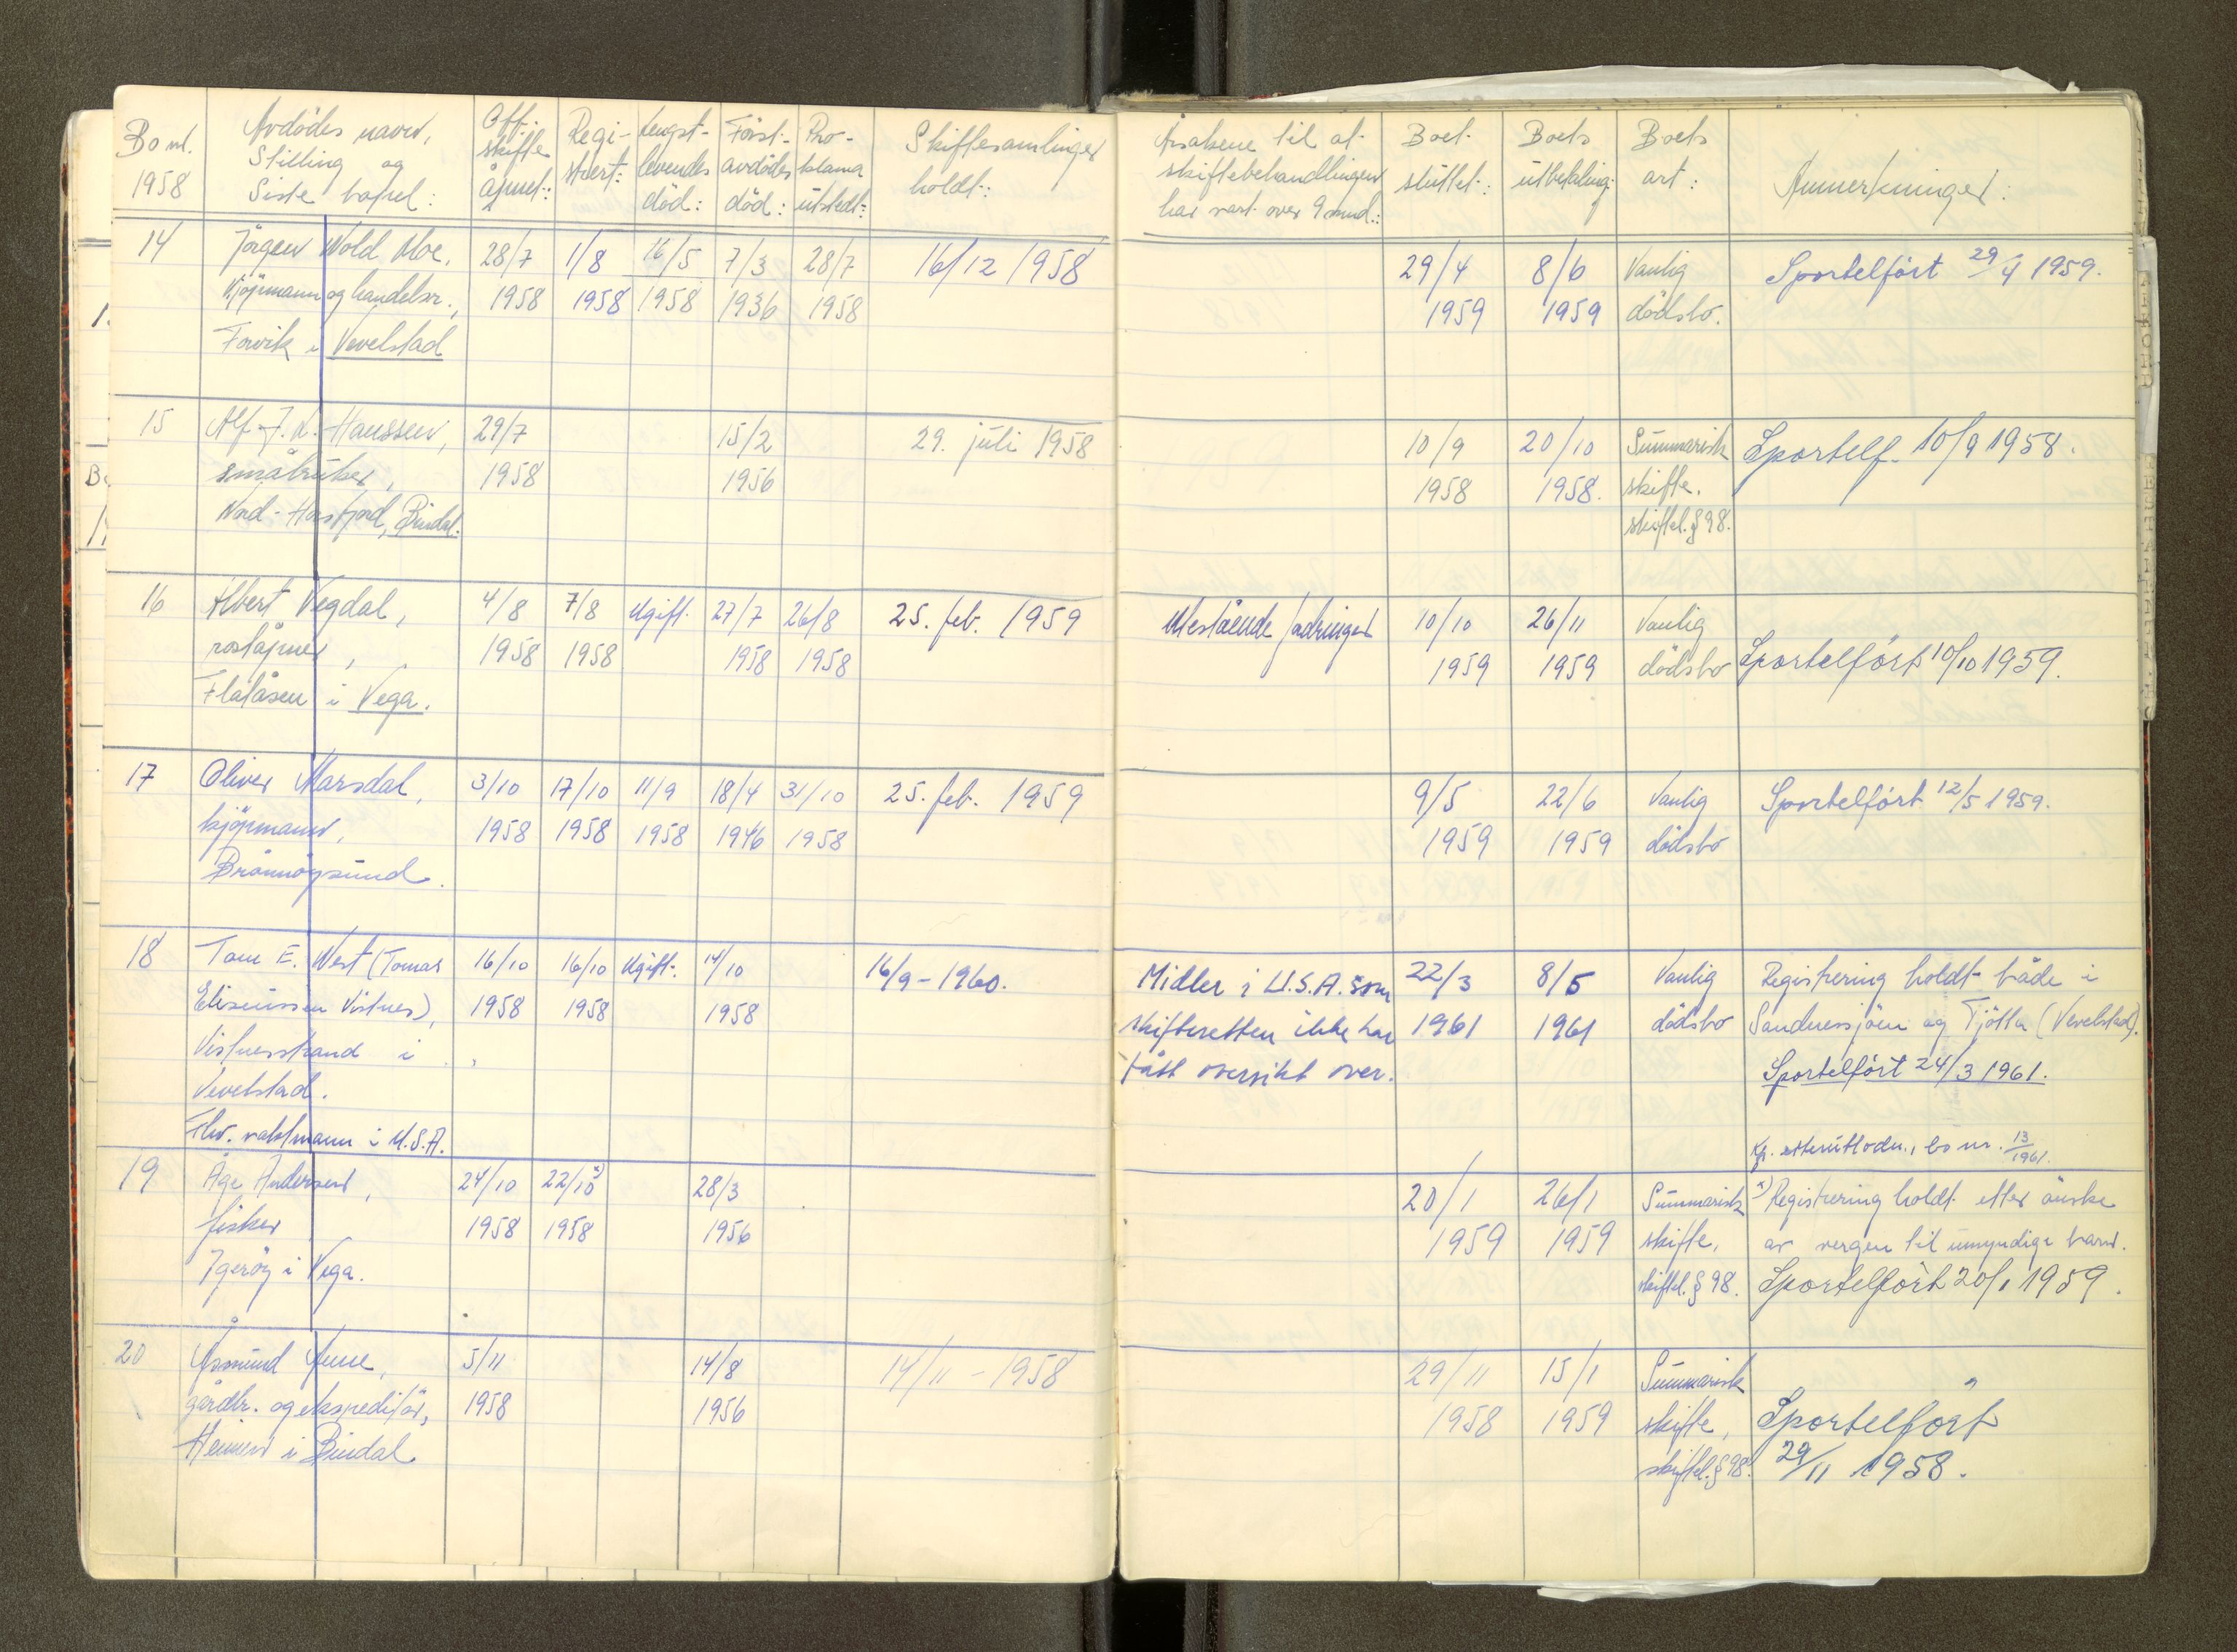 Bo nr. 1958
Avdödes navn, Stilling og Siste bopel:
Off. skifte åpnet:
Regi-strert:
Lengst-levendes död:
Först-avdödes död:
Pro-klama utstedt:
Skiftesamlinger holdt:
Årsakene til at skiftebehandlingen har vart over 9 mnd.:
Boet sluttet:
Boets utbetaling:
Boets art:
Anmerkninger:
14 Jörgen Wold Moe, 28/7 1/8 16/5 7/3 28/7 16/12 1958 29/4 8/6 Vanlig Sportelfört 29/4 1959.
Kjöpmann og handelsr., 1958 1958 1958 1936 1958 1959 1959 dödsbo.
Forvik i Vevelstad
15 Alf J. L. Hanssen, 29/7 15/2 29. juli 1958 10/9 20/10 Summarisk Sportelf. 10/9 1958.
småbruker, 1958 1956 1958 1958. skifte.
Nord-Horsfjord, Bindal. skiftel. § 98.
16 Albert Vegdal, 4/8 7/8 Ugift. 27/7 26/8 25. feb. 1959 Utestående fordringer 10/10 26/11 Vanlig
poståpner, 1958 1958 1958 1958 1959 1959 dödsbo Sportelfört 10/10 1959.
Flatåsen i Vega.
17 Oliver Marsdal, 3/10 17/10 11/9 18/4 31/10 25. feb. 1959 9/5 22/6 Vanlig Sportelfört 12/5 1959.
kjöpmann, 1958 1958 1958 1946 1958 1959 1959 dödsbo
Brönnöysund.
18 Tom E. West (Tomas 16/10 16/10 Ugift. 14/10 16/9-1960. Midler i U.S.A. som 22/3 8/5 Vanlig Registrering holdt både i
Eliseussen Vistnes), 1958 1958 1958 skifteretten ikke har 1961 1961 dödsbo Sandnessjöen og Tjötta (Vevelstad).
Vistnesstrand i fått oversikt over. Sportelfört 24/3 1961.
Vevelstad.
Fhv. vaktmann i U.S.A. Kfr. etterutlodn., bo nr. 13/1961.
19 Åge Andersen, 24/10 22/10 x) 28/3 20/1 26/1 Summarisk x) Registrering holdt etter önske
fisker 1958 1958 1956 1959 1959 skifte, av vergen til umyndige barn.
Igeröy i Vega. skiftel. § 98. Sportelfört 20/1 1959.
20 Åsmund Aune, 5/11 14/8 14/11-1958 29/11 15/1 Summarisk
gårdbr. og ekspeditör, 1958 1956 1958 1959 skifte, Sportelfört
Heimen i Bindal skiftel. § 98. 29/11 1958.